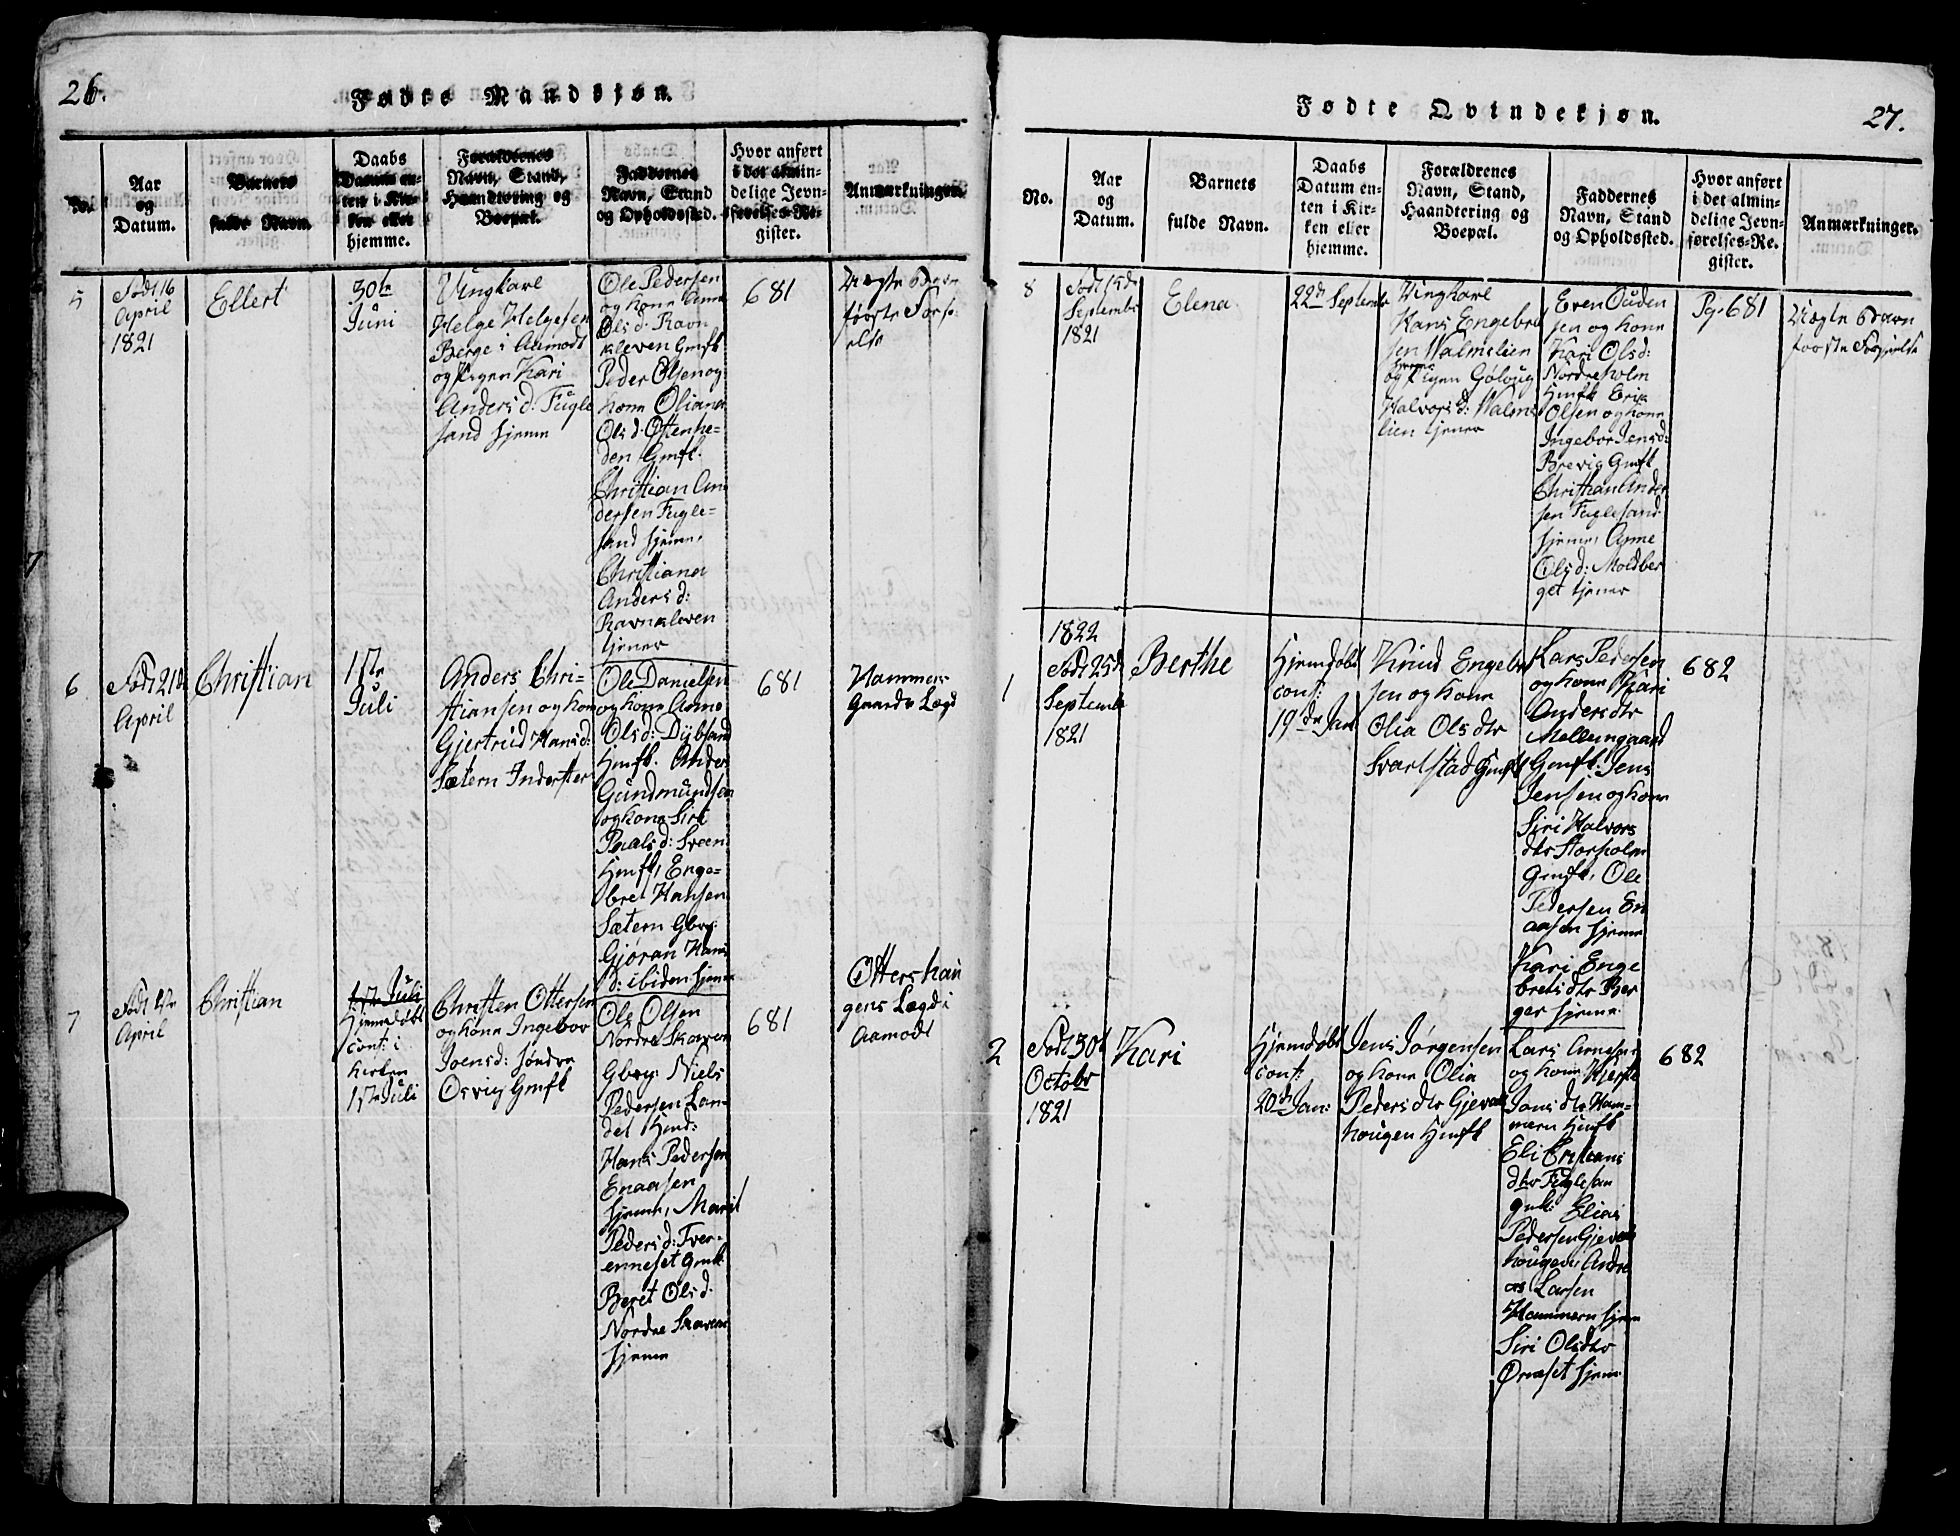 26.
Fødte Mandkjøn.
No.
Aar
og
Datum.
Barnets
fulde Navn.
Daabs
Datum en-
ten i Kir-
ken eller
hjemme.
Forældrenes
Navn, Stand,
Haandtering og
Boepæl.
Faddernes
Navn, Stand
og Opholdssted.
Hvor anført
i det almin-
delige Jevn-
førelses-Re-
gister.
Anmærkninger.
5
Født 16
April
1821
Ellert
30te
Juni
Ungkarl
Helge Helgesen
Berge i Aamodt
og Pigen Kari
Andersd: Fugle
sand hjeme
Ole Pedersen
og kone Anne
Olsd: Ravn
kleven Gmfk
Peder Olsen og
kone Oliana
Olsd: Ostenhe-
den Gmfk.
Christian An
dersen Fugle-
sand hjeme,
Christiana
Andersd:
Ravnkleven
tjener
681
Uægte Barn
første Forse-
else
6
Født 21de
April
Christian
1ste
Juli
Anders Chri-
stiansen og kone
Gjertrud Hansd:
Sætern Inderster
Ole Danielsen
og kone Anne
Olsd: Dybsand
Hmfk. Anders
Gundmundsen
og kone Siri
Paalsd: Sveen
Hmfk, Enge-
bret Hansen
Sætern Gbrs:
Gjøran Hans
D: ibiden hjeme
681
Hammers
Gaards Lægd
7
Født 1ste
April
Christian
1ste Juli
Hjemedøbt
conf: i
Kirken
1ste Juli
Christen Ottersen
og kone Ingebor
Joensd: Søndre
Osvig Gmfk
Ole Olsen
Nordre Skaven
Gbry: Niels
Pedersen Lan-
det Hmd:
Hans Pedersen
Enaasen
hjeme, Marit
Pedersd: Tver-
enneset Gmk
Beret Olsd:
Nordre Skaven
hjeme
681
Otters hau
gens Lægd i
Aamodt
Fødte Qvindekjøn.
27.
No.
Aar
og
Datum.
Barnets
fulde Navn.
Daabs
Datum en-
ten i Kir-
ken eller
hjemme.
Forældrenes
Navn, Stand,
Haandtering og
Boepæl.
Faddernes
Navn, Stand
og Opholdssted.
Hvor anført
i det almin-
delige Jevn-
førelses-Re-
gister.
Anmærkninger.
8
Født 15de
Septembr
1821
Elena
22de Septembr
Ungkarl
Hans Engebret
sen Malmelien
og Pigen Gøloug
Halvorsd: Malme
lien tjener
Even Ouden
sen og kone
Kari Olsd:
Nordreholm
Hmfk Erik
Olsen og kone
Ingebor Jensd:
Brevig Gmfk
Christian Ander
sen Fuglesand
hjeme, Anne
Olsd: Moldber
get tjener
Pg. 681
Uægte Barn
første Forseelse
1822
1
Født 25de
Septembr
1821
Berthe
Hjemdøbt
conf:
19de Jan
Knud Engebret
sen og kone
Olia Olsdtr
Svartstad Gmfk
Lars Pedersen
og kone Kari
Andersdtr
Mellemgaard
Gmfk: Jens
Jensen og kone
Siri Halvors
dtr Storholm
Gmfk, Ole
Pedersen En
aasen hjeme
Kari Enge
bretsdtr Ber
ger hjeme
682
2
Født 30te
Octobr
1821
Kari
Hjemdøbt
conf:
20de Jan:
Jens Jørgensen
og kone Olia
Pedersdtr Gjeval
hougen Hmfk
Lars Arnesen
og kone Kjersti
Jonsdtr Ham-
mern Hmfk
Eli Cristians
dtr Fuglesan
gmk: Elias
Pedersen Gjeval
hougen, Andre
as Larsen
Hammern hjem
Siri Olsdtr
Ørneset hjem
682